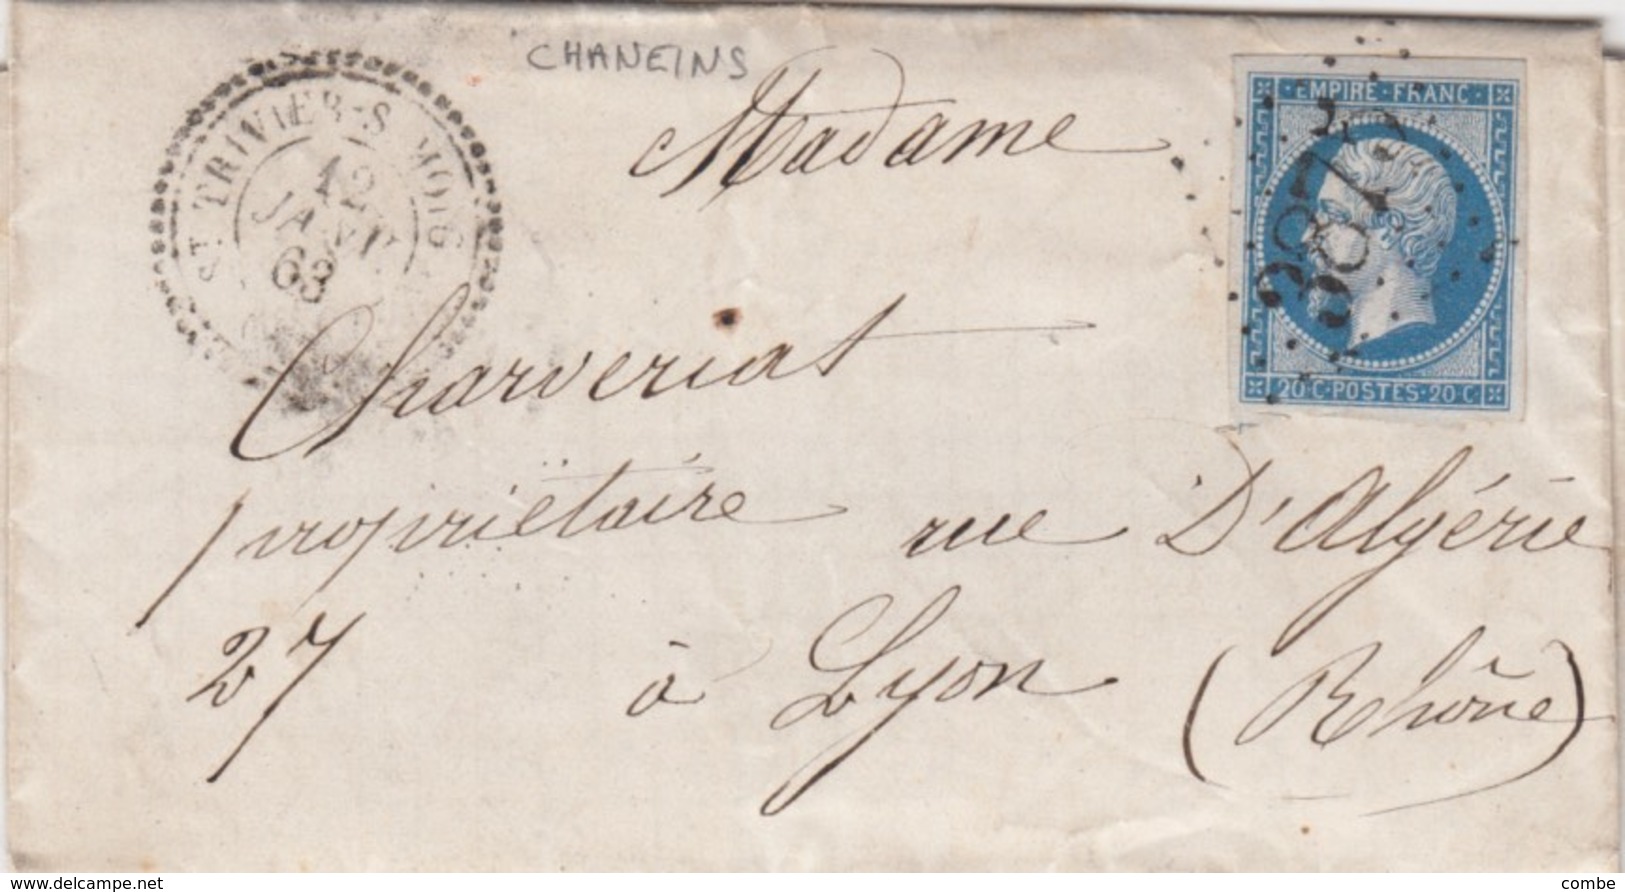 CHANEINS
ST TRIVIER-S-MOIG
12
JANV
63
EMPIRE·FRANC
20·C·POSTES·20·C
Madame
Charveriat
propriëtaire rue D'Algérie
27 à Lyon (Rhône)
delcampe.net
combe